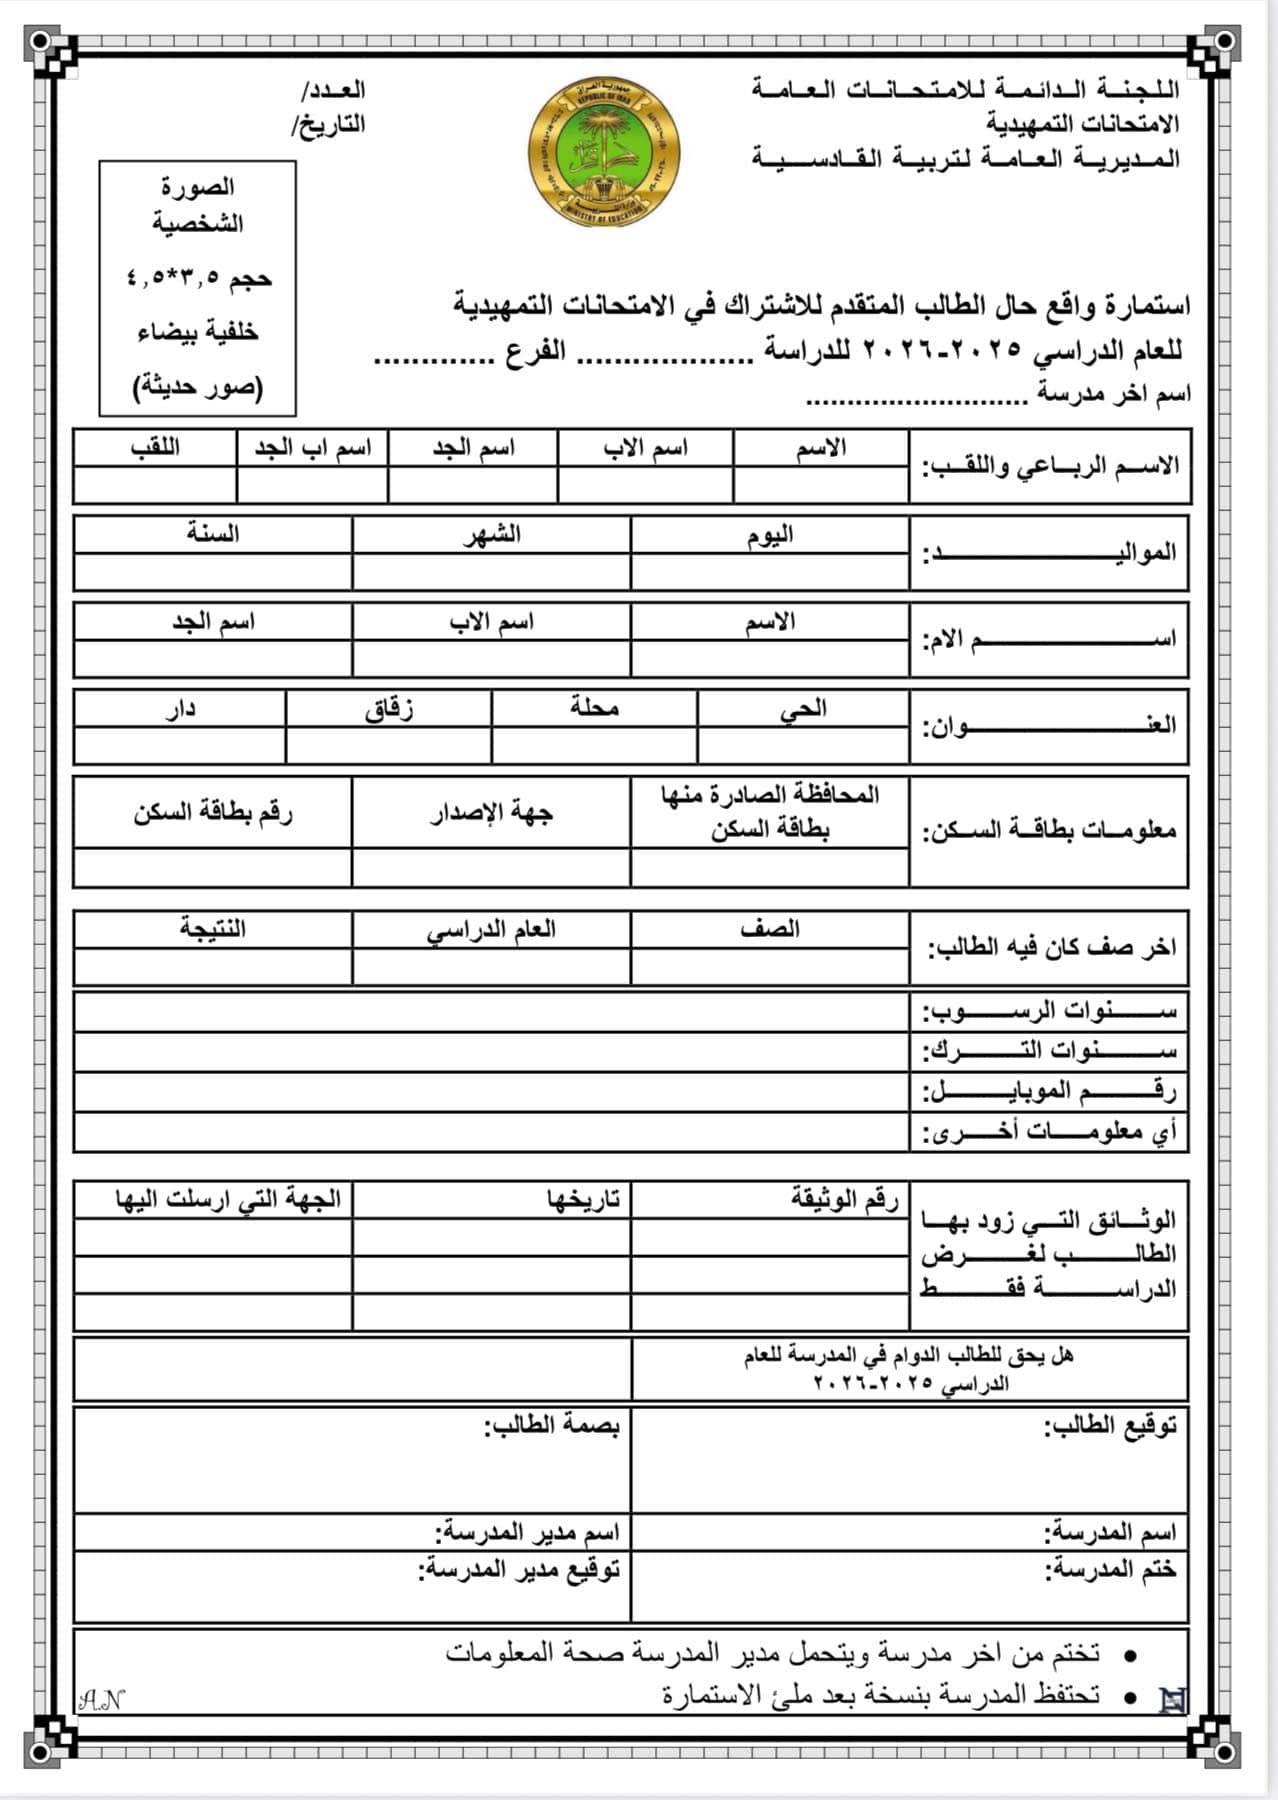 اللجنة الدائمة للامتحانات العامة
الامتحانات التمهيدية
المديرية العامة لتربية القادسية
العدد/
التاريخ/
جمهورية العراق
REPUBLIC OF IRAQ
وزارة التربية
MINISTRY OF EDUCATION
الصورة
الشخصية
حجم ٣,٥*٤,٥
خلفية بيضاء
(صور حديثة)
استمارة واقع حال الطالب المتقدم للاشتراك في الامتحانات التمهيدية
للعام الدراسي ٢٠٢٥-٢٠٢٦ للدراسة ................... الفرع .............
اسم اخر مدرسة ...........................
الاسم الرباعي واللقب: الاسم اسم الاب اسم الجد اسم اب الجد اللقب
المواليد: اليوم الشهر السنة
اسم الام: الاسم اسم الاب اسم الجد
العنوان: الحي محلة زقاق دار
معلومات بطاقة السكن: المحافظة الصادرة منها بطاقة السكن جهة الإصدار رقم بطاقة السكن
اخر صف كان فيه الطالب: الصف العام الدراسي النتيجة
سنوات الرسوب:
سنوات الترك:
رقم الموبايل:
أي معلومات أخرى:
الوثائق التي زود بها
الطالب لغرض
الدراسة فقط
رقم الوثيقة تاريخها الجهة التي ارسلت اليها
هل يحق للطالب الدوام في المدرسة للعام
الدراسي ٢٠٢٥-٢٠٢٦
توقيع الطالب: بصمة الطالب:
اسم المدرسة: اسم مدير المدرسة:
ختم المدرسة: توقيع مدير المدرسة:
• تختم من اخر مدرسة ويتحمل مدير المدرسة صحة المعلومات
• تحتفظ المدرسة بنسخة بعد ملئ الاستمارة
A.N